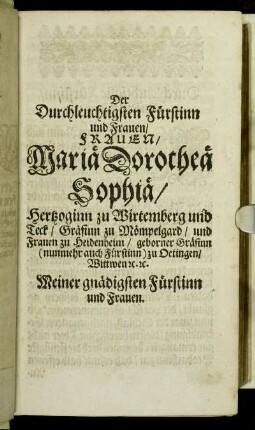 Der
Durchleuchtigsten Fürstinn
und Frauen/
FRAUEN/
Mariä Dorotheä
Sophiä/
Hertzoginn zu Wirtemberg und
Teck/ Gräfinn zu Mömpelgard/ und
Frauen zu Heidenheim/ geborner Gräfinn
(nunmehr auch Fürstinn) zu Oetingen/
Wittwen ꝛc. ꝛc.
Meiner gnädigsten Fürstinn
und Frauen.